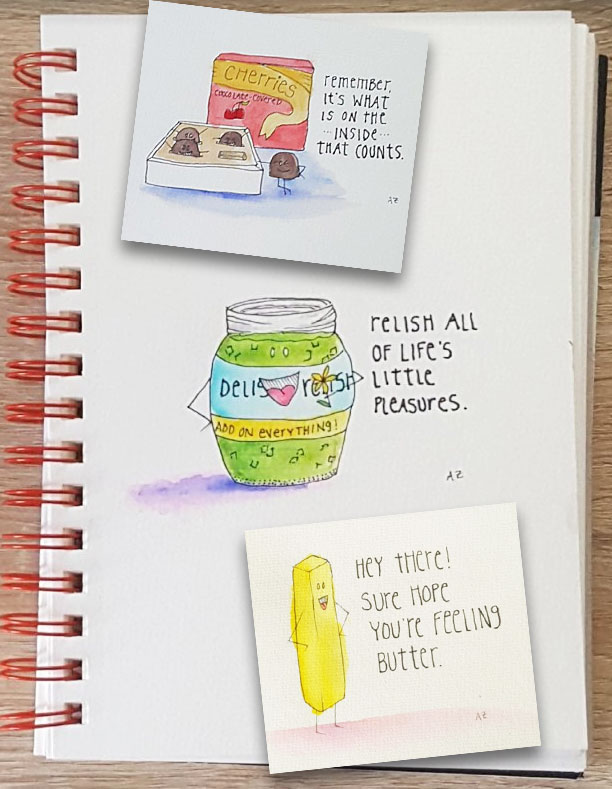 CHerries
COCOLATE-COVERED
remember,
IT'S WHAT
IS ON THE
...INSIDE...
THAT COUNTS.
AZ
reLISH ALL
OF LIFE'S
LITTLE
PLEASURES.
DELIS reLISH
ADD ON everyTHING!
AZ
HEY THere!
SURE HOPE
YOU'RE FEELING
BUTTER.
AZ